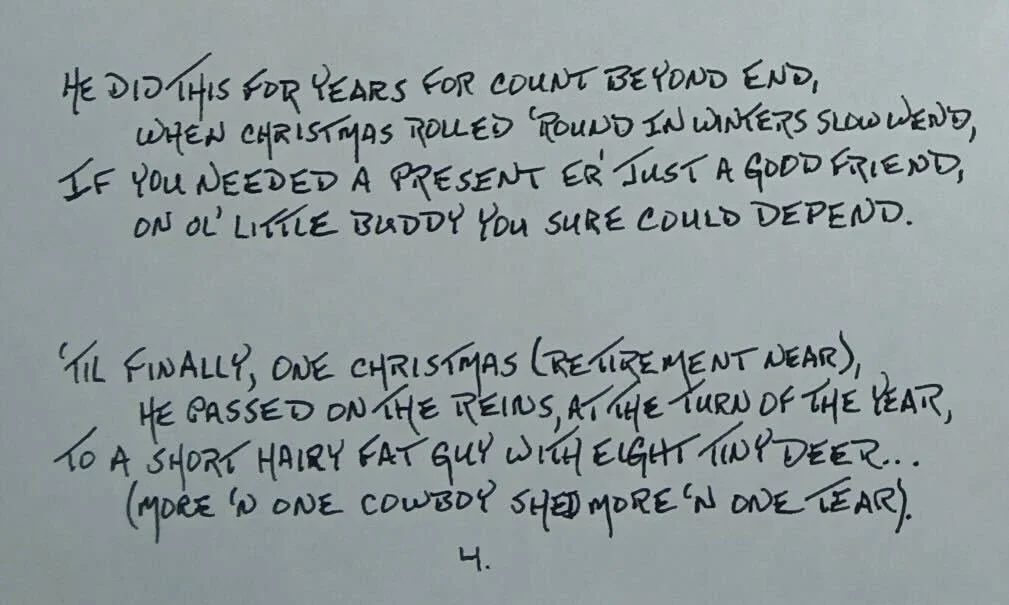 HE DID THIS FOR YEARS FOR COUNT BEYOND END,
WHEN CHRISTMAS ROLLED 'ROUND IN WINTERS SLOW WEND,
IF YOU NEEDED A PRESENT ER' JUST A GOOD FRIEND,
ON OL' LITTLE BUDDY YOU SURE COULD DEPEND.
'TIL FINALLY, ONE CHRISTMAS (RETIREMENT NEAR),
HE PASSED ON THE REINS, AT THE TURN OF THE YEAR,
TO A SHORT HAIRY FAT GUY WITH EIGHT TINY DEER...
(MORE 'N ONE COWBOY SHED MORE 'N ONE TEAR).
4.